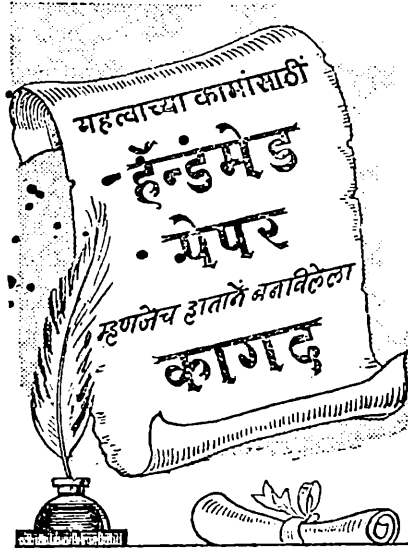 महत्वाच्या कामांसाठीं
हॅन्डंमेड
पेपर
म्हणजेच हातानें बनविलेला
कागद